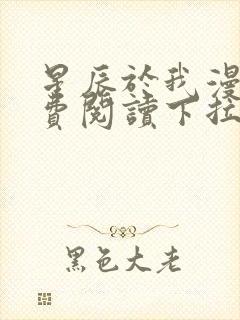 星辰於我漫
費閱讀下拉
黑色大老